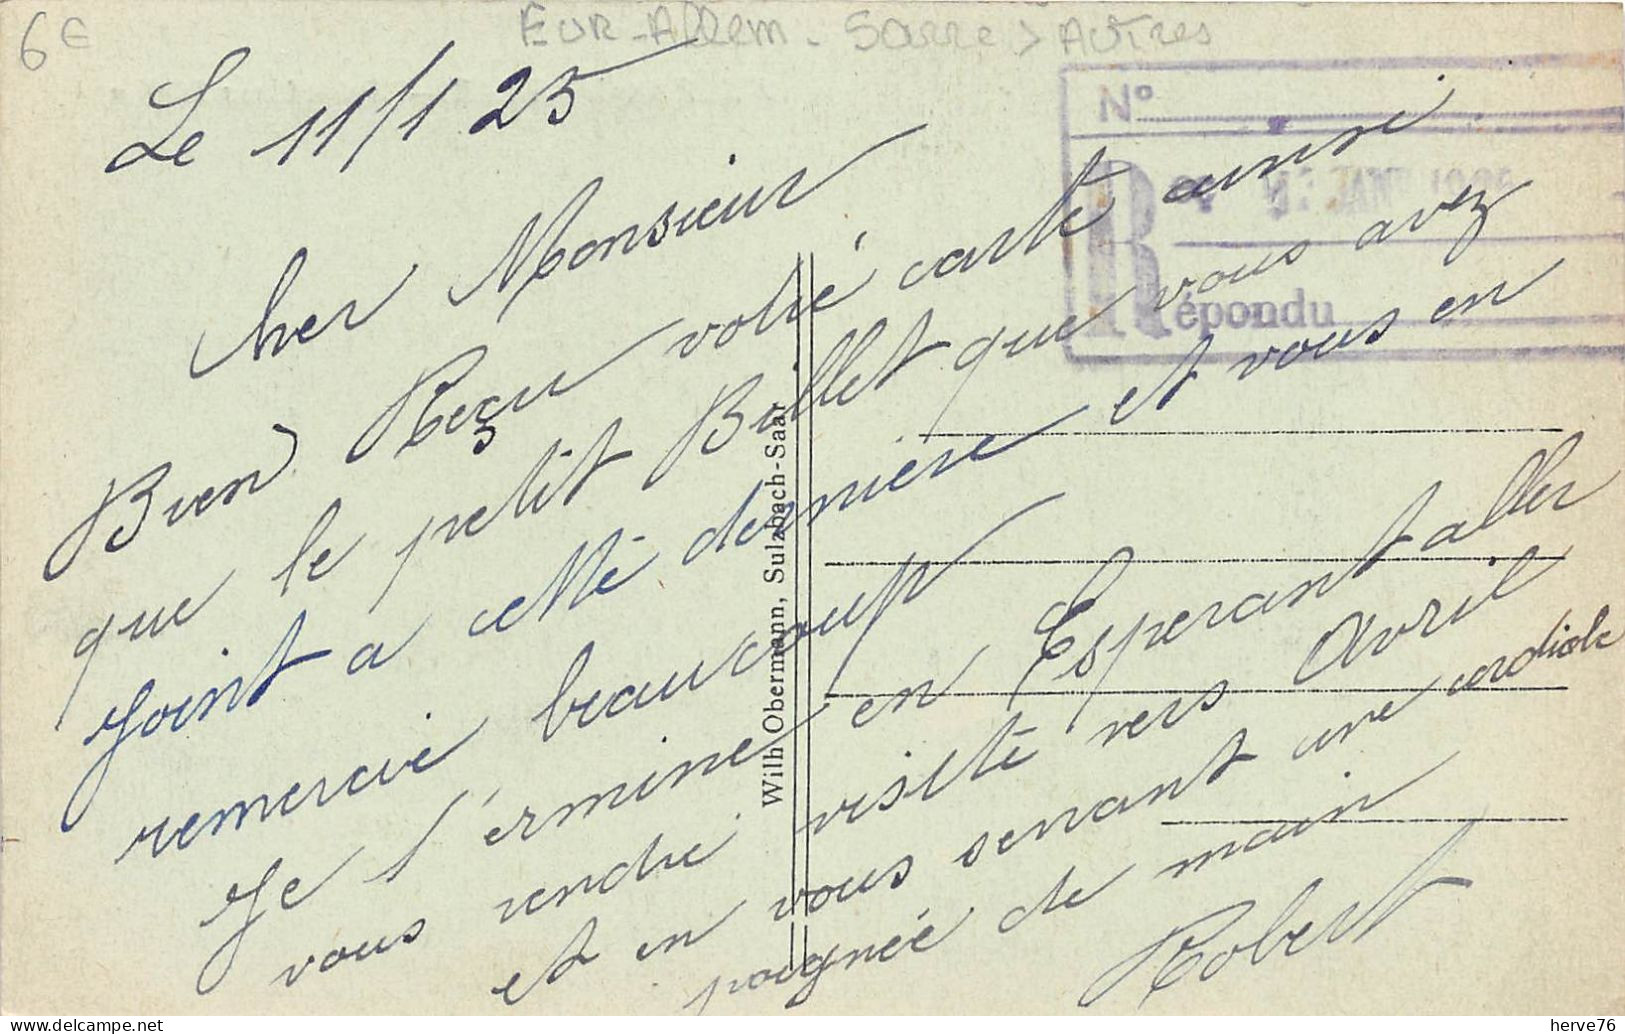 6€
EUR-Allem - Sarre > Autres
Le 11/1 25
N°
R
épondu
Cher Monsieur
Bien Reçu votre carte ainsi
que le petit Billet que vous avez
joint a cette dernière et vous en
remercie beaucoup
Je termine en Esperant aller
vous rendre visite vers Avril
et en vous serrant une cordiale
poignée de main
Robert
Wilh Obermann, Sulzbach-Saar
herve76
© Delcampe.net